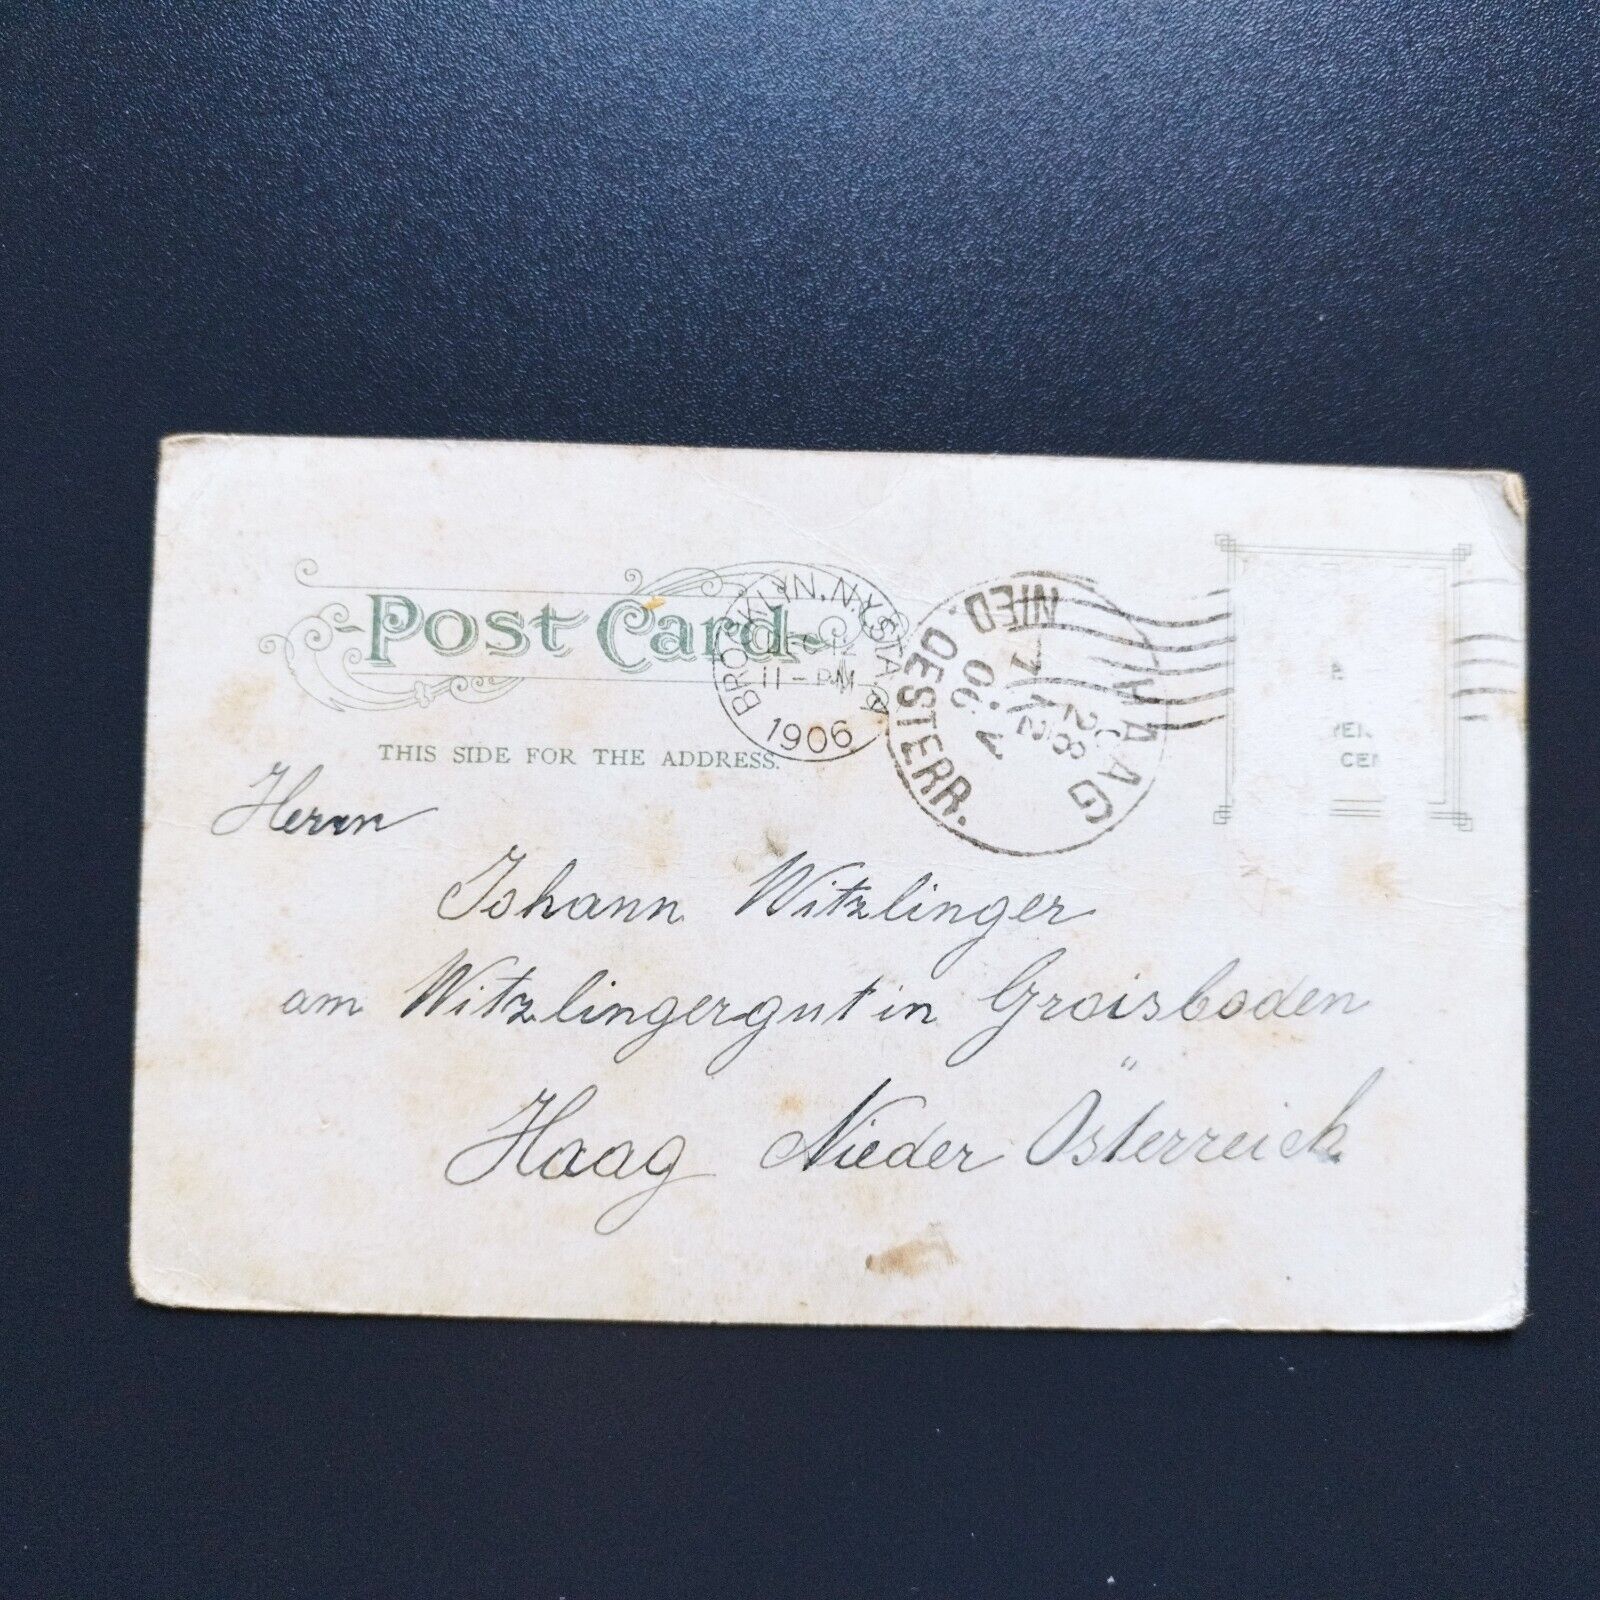 Post Card
BROOKLYN, N.Y. STA.
DEC 12
11-PM
1906
HAAG
NIED. OESTERR.
THIS SIDE FOR THE ADDRESS.
Herrn
Johann Witzlinger
am Witzlingergut in Groisboden
Haag Nieder Österreich